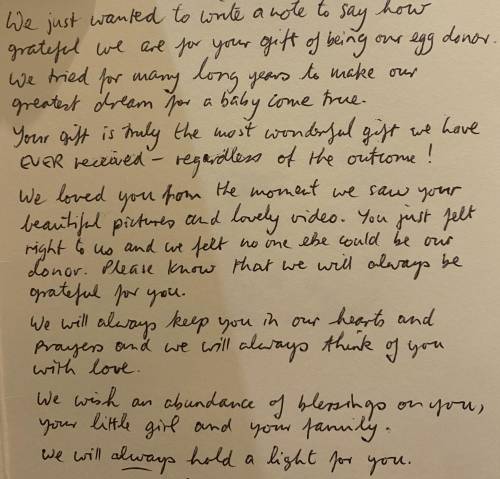 We just wanted to write a note to say how
grateful we are for your gift of being our egg donor.
We tried for many long years to make our
greatest dream for a baby come true.
Your gift is truly the most wonderful gift we have
EVER received - regardless of the outcome!
We loved you from the moment we saw your
beautiful pictures and lovely video. You just felt
right to us and we felt no one else could be our
donor. Please know that we will always be
grateful for you.
We will always keep you in our hearts and
Prayers and we will always think of you
with love.
We wish an abundance of blessings on you,
your little girl and your family.
We will always hold a light for you.